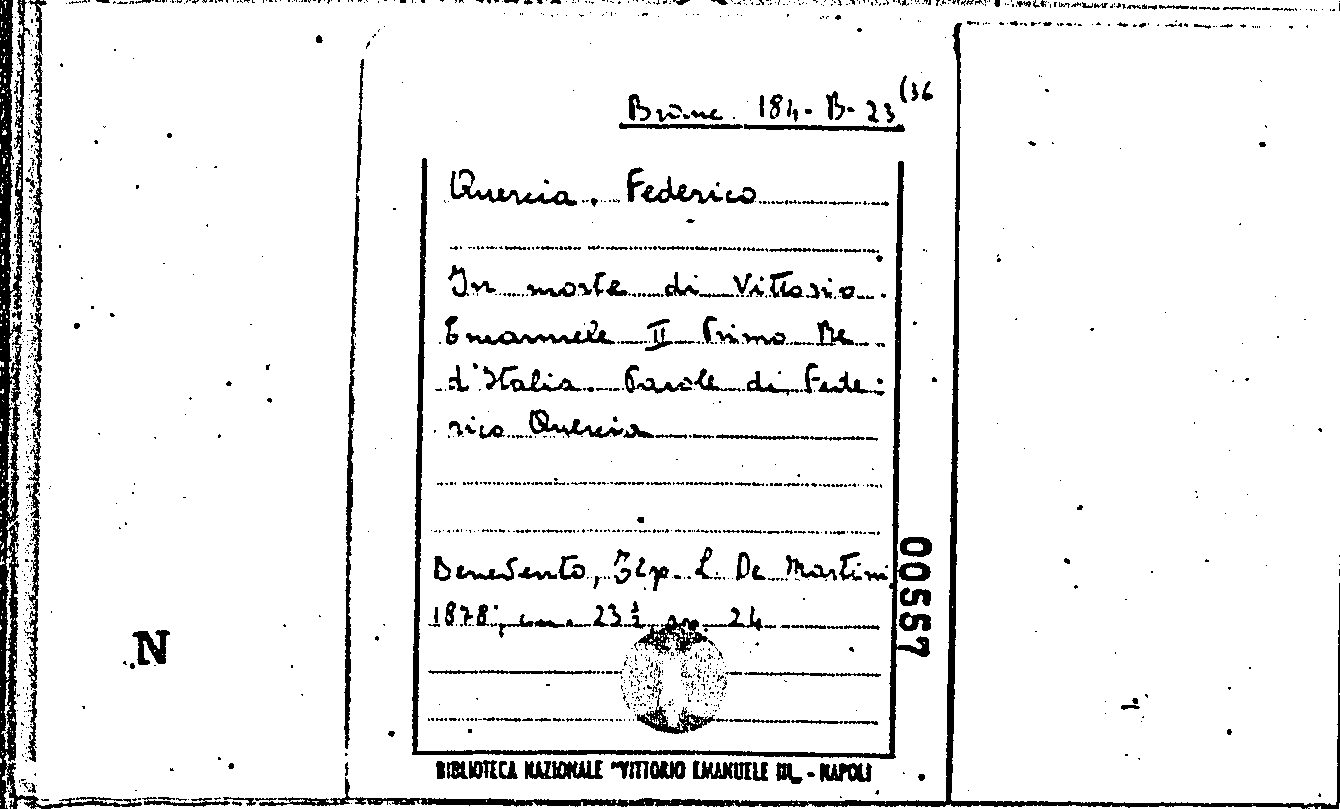 Branc. 184-B-23 (36
Quercia, Federico
In morte di Vittorio
Emanuele II Primo Re
d'Italia. Parole di Fede=
rico Quercia
Benevento, Tip. L. De Martini
1878; cm. 23½, pp. 24
00557
N
BIBLIOTECA NAZIONALE "VITTORIO EMANUELE III„ - NAPOLI